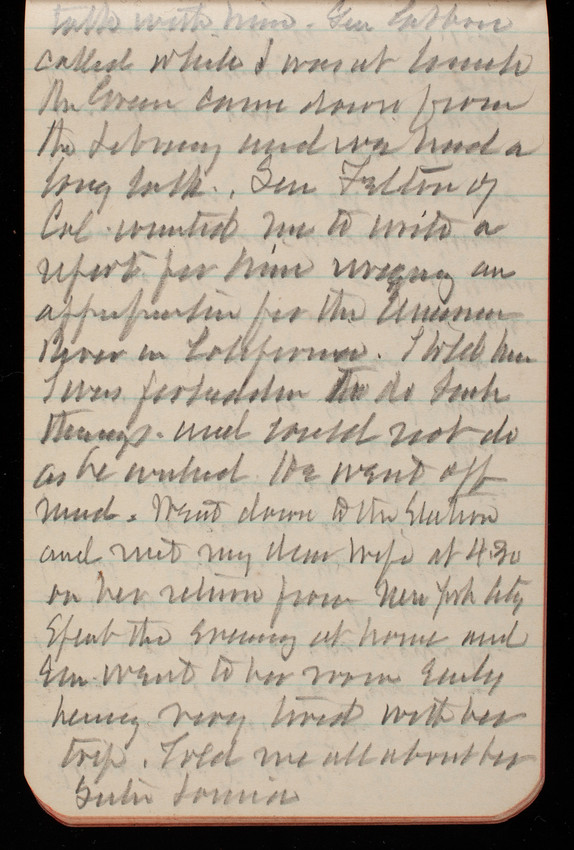 talk with him. Gen
called while I was at lunch
Mr Green came down from
the Library and we had a
long talk. Sen Felton of
Cal. wanted me to write a
report for him urging an
appropriation for the
River in California. I told him
I was forbidden to do such
things and could not do
as he wished. He went off
mad. Went down to the Station
and met my dear wife at 4.30
on her return from New York City
Spent the evening at home and
Em went to her room early
being very tired with her
trip. Told me all about her